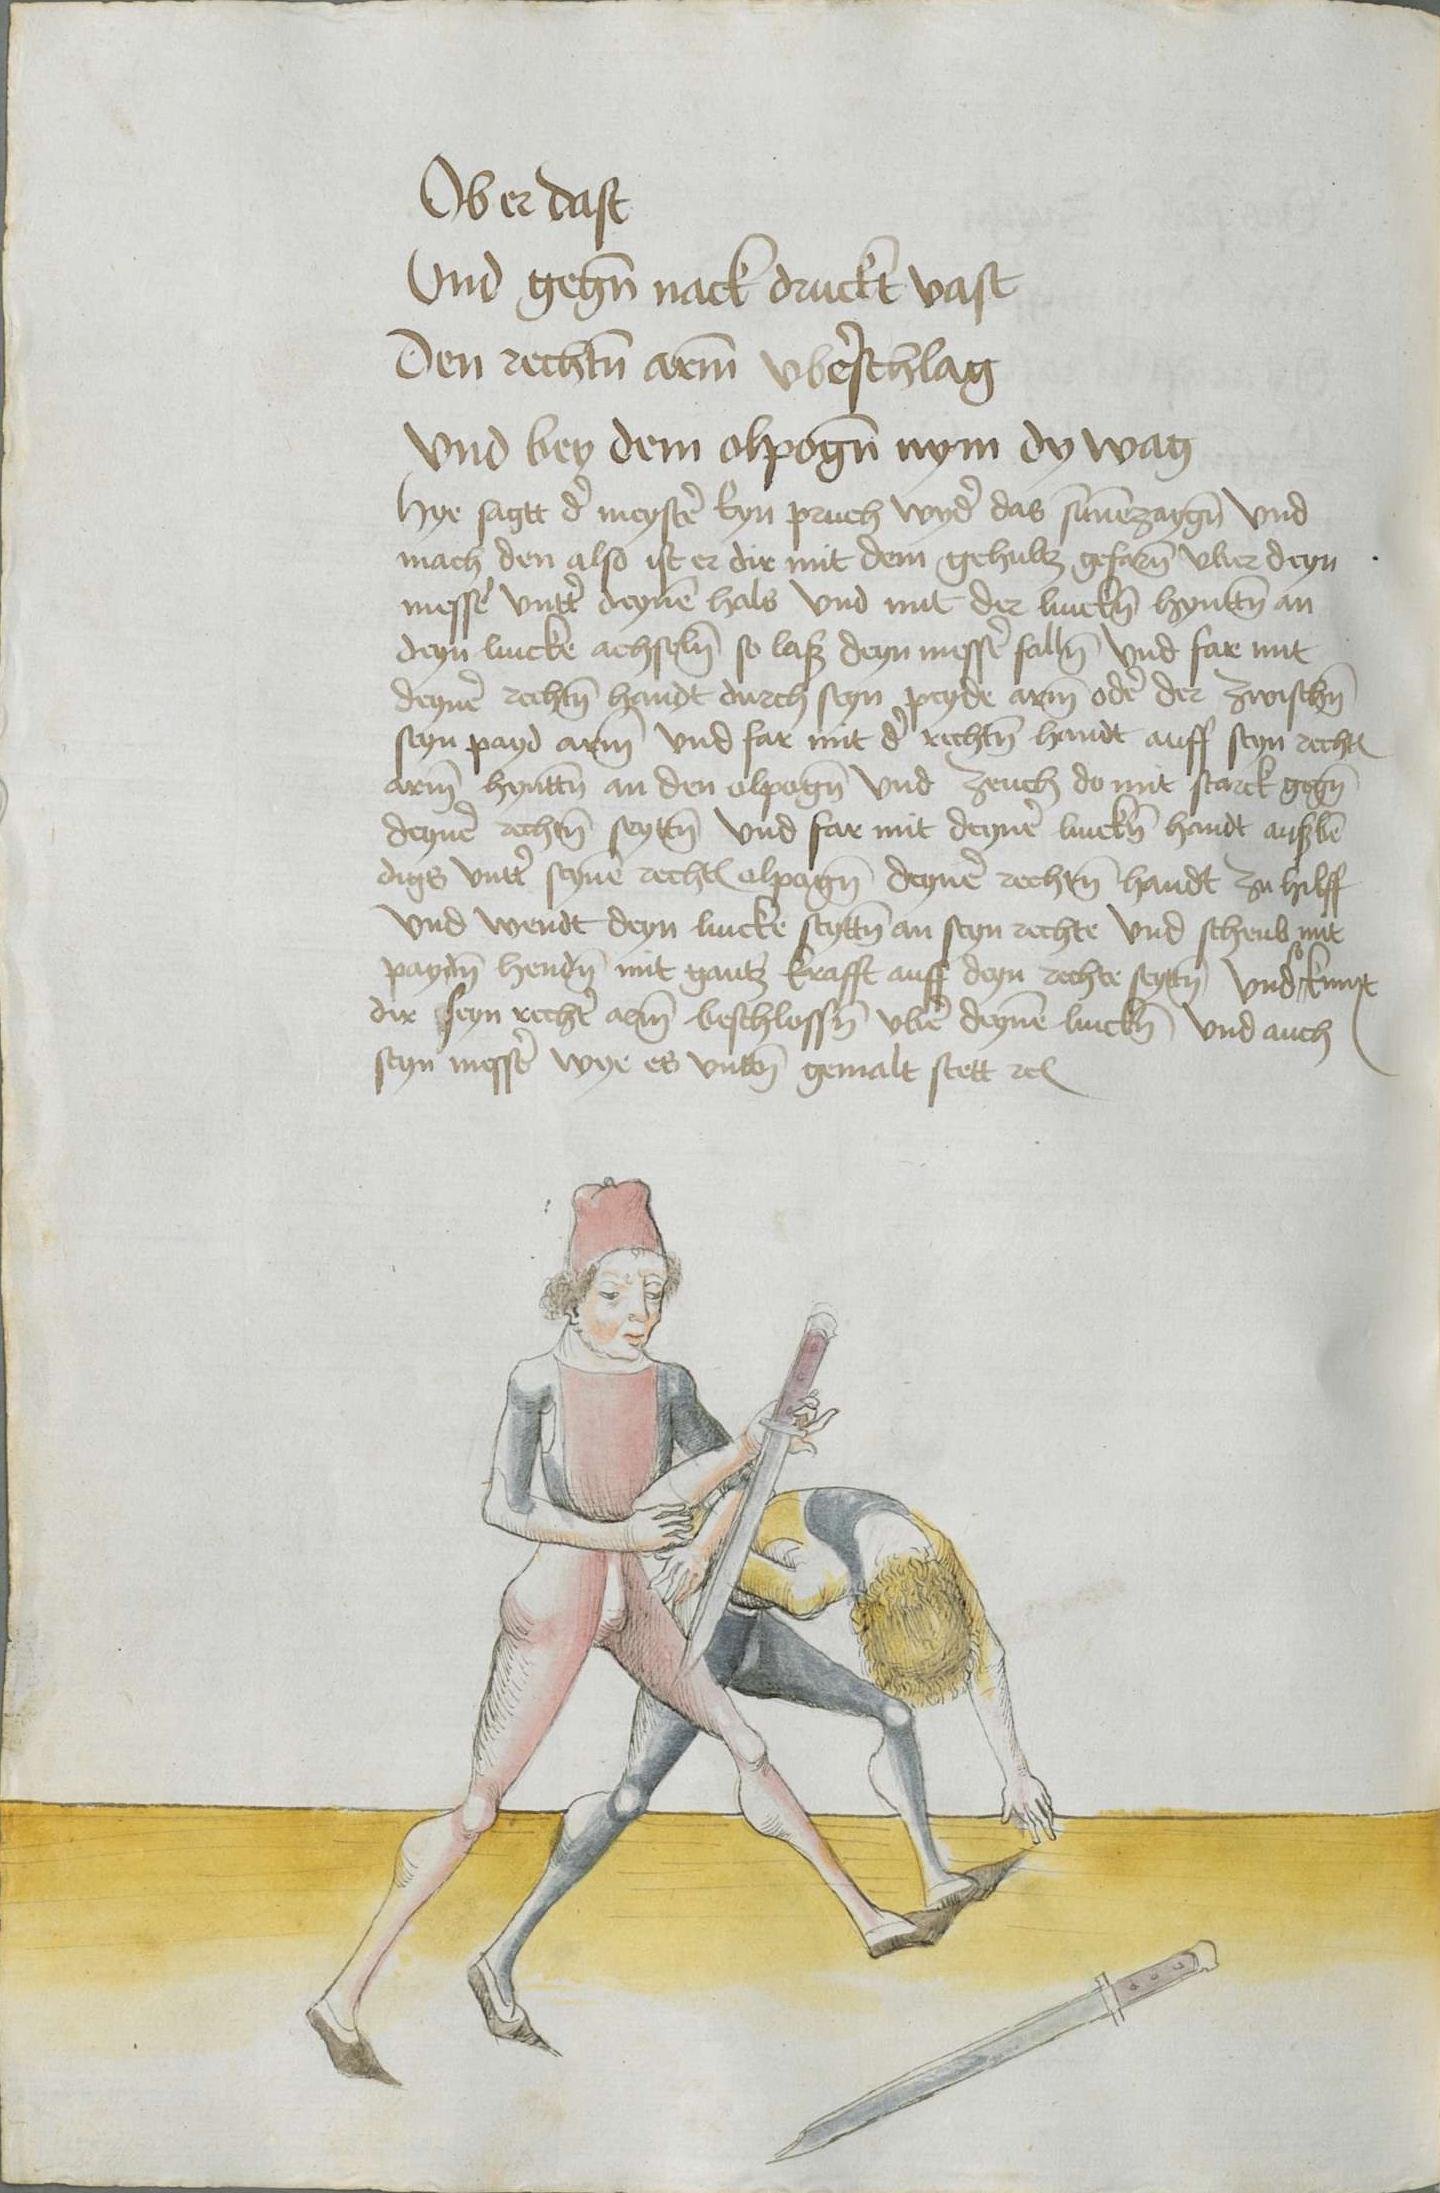 Ob er dast
Vnd gegñ nack druckt vast
Den rechtñ arm̄ vbe᷑schlag
Vnd bey dem olpogñ nym dy wag
Hye sagtt d᷑ meyste᷑ eyn pruch wyd᷑ das sūnēzaygñ Vnd
mach den also ist er dir mit dem gehultz gefarñ vber deyn
messe᷑ vntt᷑ deynē hals Vnd mit der linckñ hynttñ an
deyn lincke achselñ so laß deyn messe᷑ fallñ Vnd far mit
deyne᷑ rechtñ handt durch seyn peyde arm̄ ode᷑ der zwischñ
seyn payd arm̄ vnd far mit d᷑ rechtñ handt auff seyn rechtē
arm̄ hynttñ an den olpogñ Vnd zeuch do mit starck gegñ
deyne᷑ rechtñ seyttñ Vnd far mit deyne᷑ linckñ handt außbē
digs vntt᷑ seynē rechtē olpogñ deyne᷑ rechtñ handt zu hilff
Vnd wendt deyn lincke seyttñ an seyn rechte Vnd scheub mit
paydñ hendñ mit gantz krafft auff deyn rechte seyttñ Vnd so kumt
dir seyn recht᷑ arm̄ beschlossñ vbe᷑ deynē linckñ Vnd auch
seyn messe᷑ wye es vnttñ gemalt stett rc